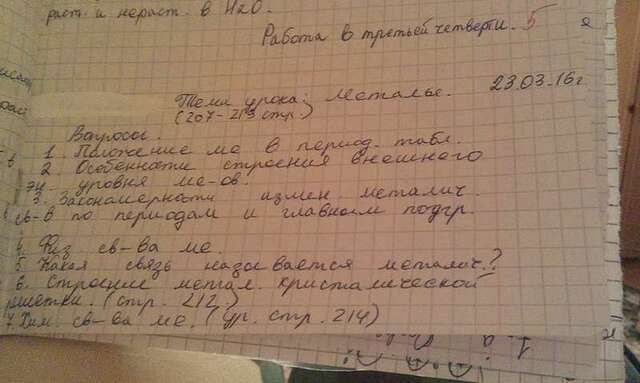 раст. и нераст. в H2O.
Работа в третьей четверти. 5
23.03.16г
Тема урока: Металлы.
(207-213 стр.)
Вопросы.
1. Положение ме в период. табл.
2 Особенности строения внешнего
эн. уровня ме-ов.
3. Закономерности измен. металич.
св-в по периодам и главным подгр.
4. Физ св-ва ме.
5 Какая связь называется металич.?
6. Строение метал. кристалической
решетки. (стр. 212.)
7. Хим. св-ва ме. (ур. стр. 214)